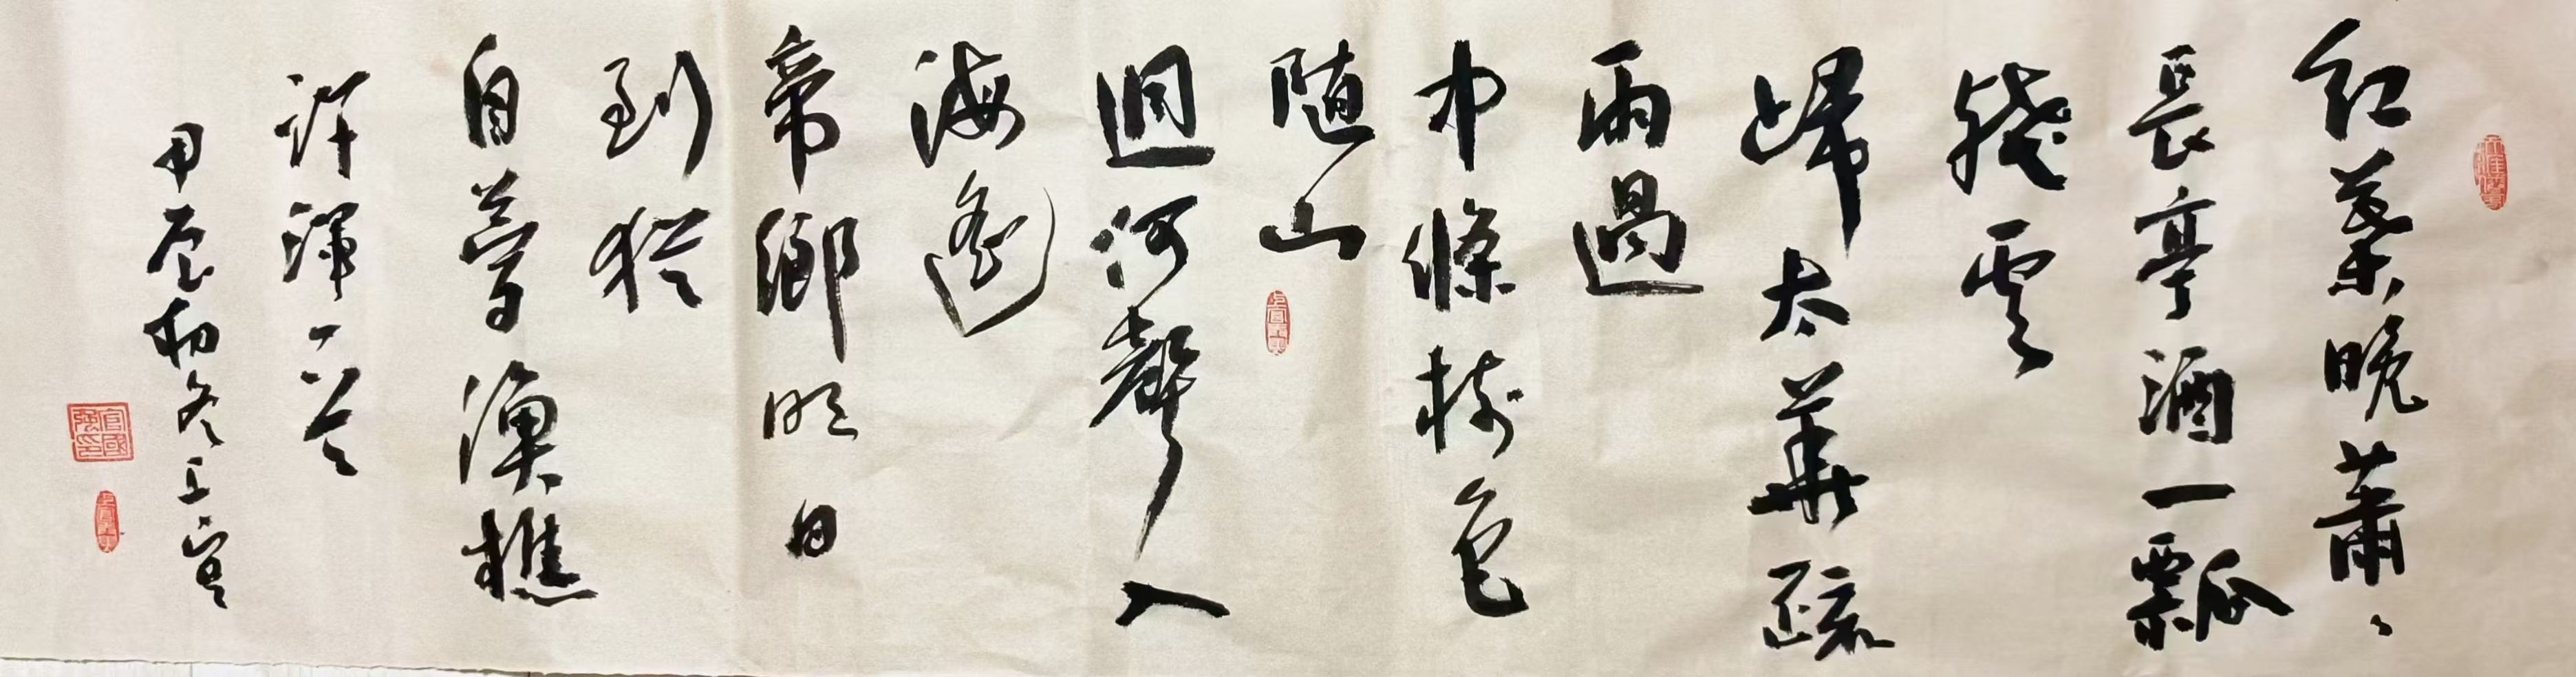 紅葉晚蕭〻
長亭酒一瓢
殘雲
歸太華疏
雨過
中條樹色
随山
迴河聲入
海遙
帝鄉明日
到猶
自夢漁樵
許渾一首
甲辰初冬
官國強印